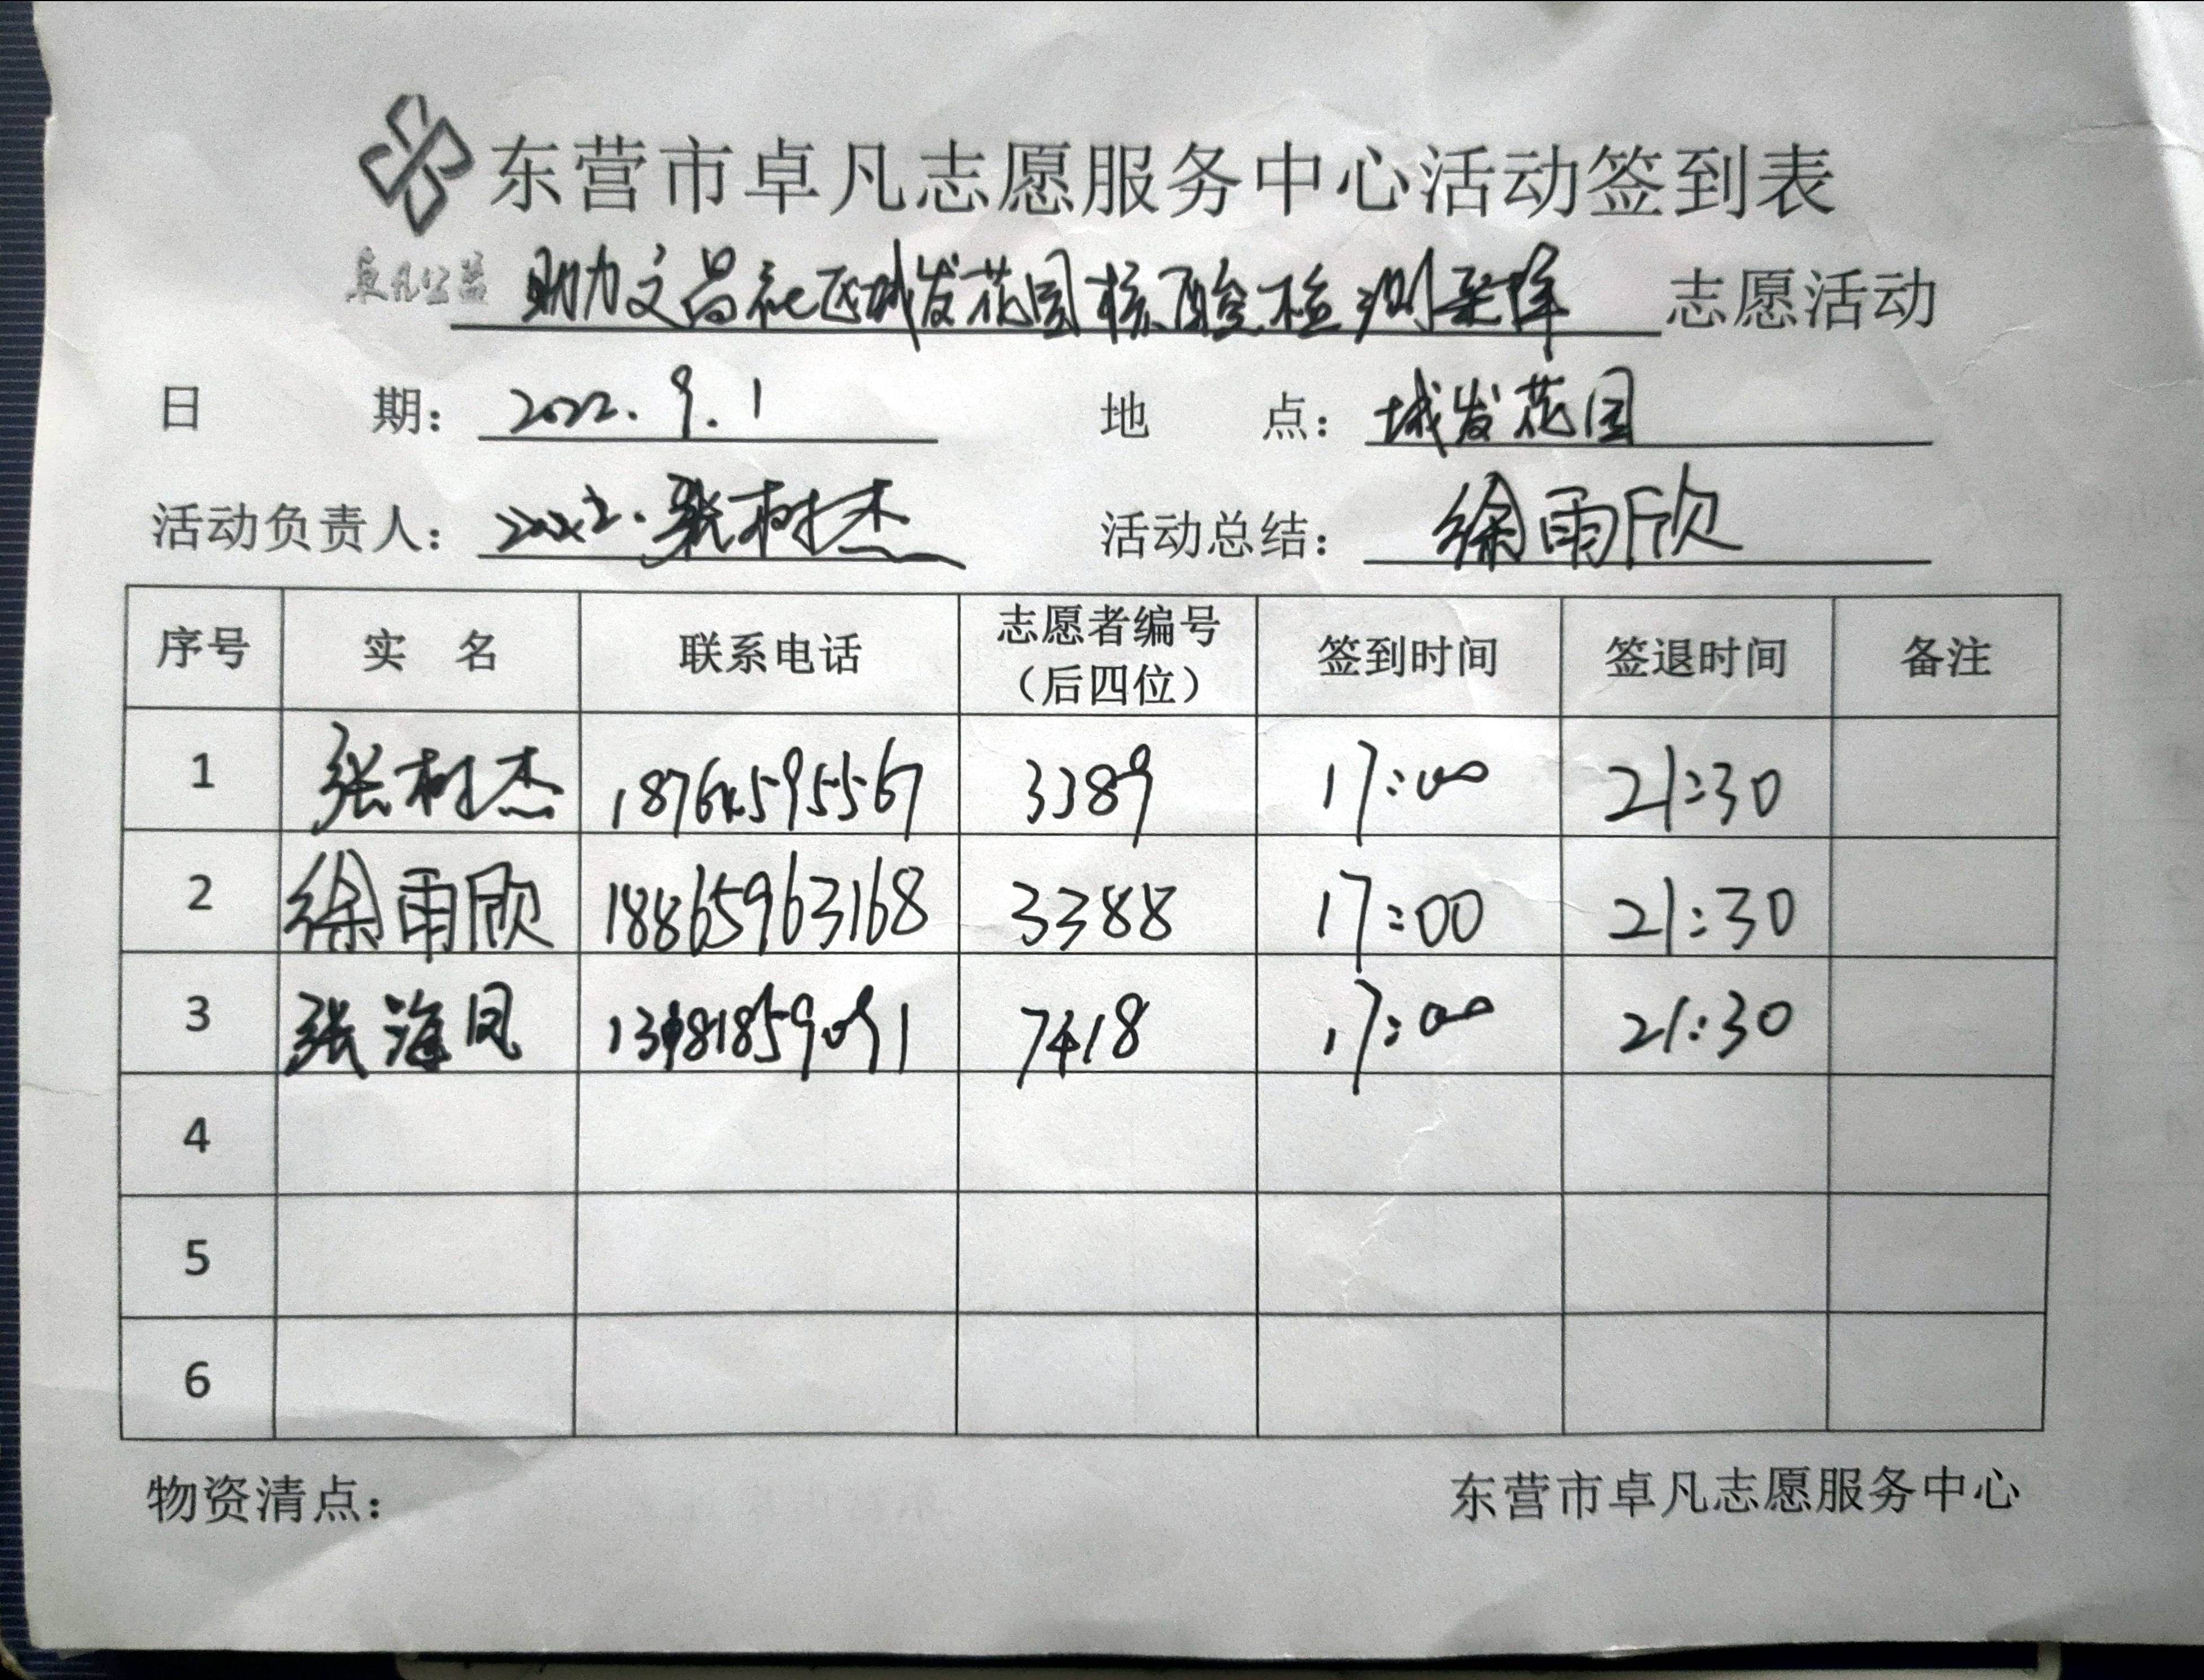 东营市卓凡志愿服务中心活动签到表
卓凡公益 助力文昌社区城发花园核酸检测采样 志愿活动
日 期: 2022.9.1 地 点: 城发花园
活动负责人: 2022.张树杰 活动总结: 徐雨欣
序号 实 名 联系电话 志愿者编号（后四位） 签到时间 签退时间 备注
1 张树杰 3389 17:00 21:30
2 徐雨欣 18865963168 3388 17:00 21:30
3 张海凤 7418 17:00 21:30
4
5
6
物资清点: 东营市卓凡志愿服务中心